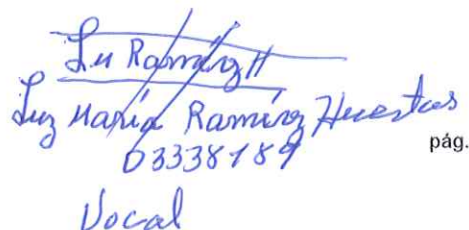 Lu Ramírez H
Luz María Ramírez Huertas
03338189
pág.
Vocal